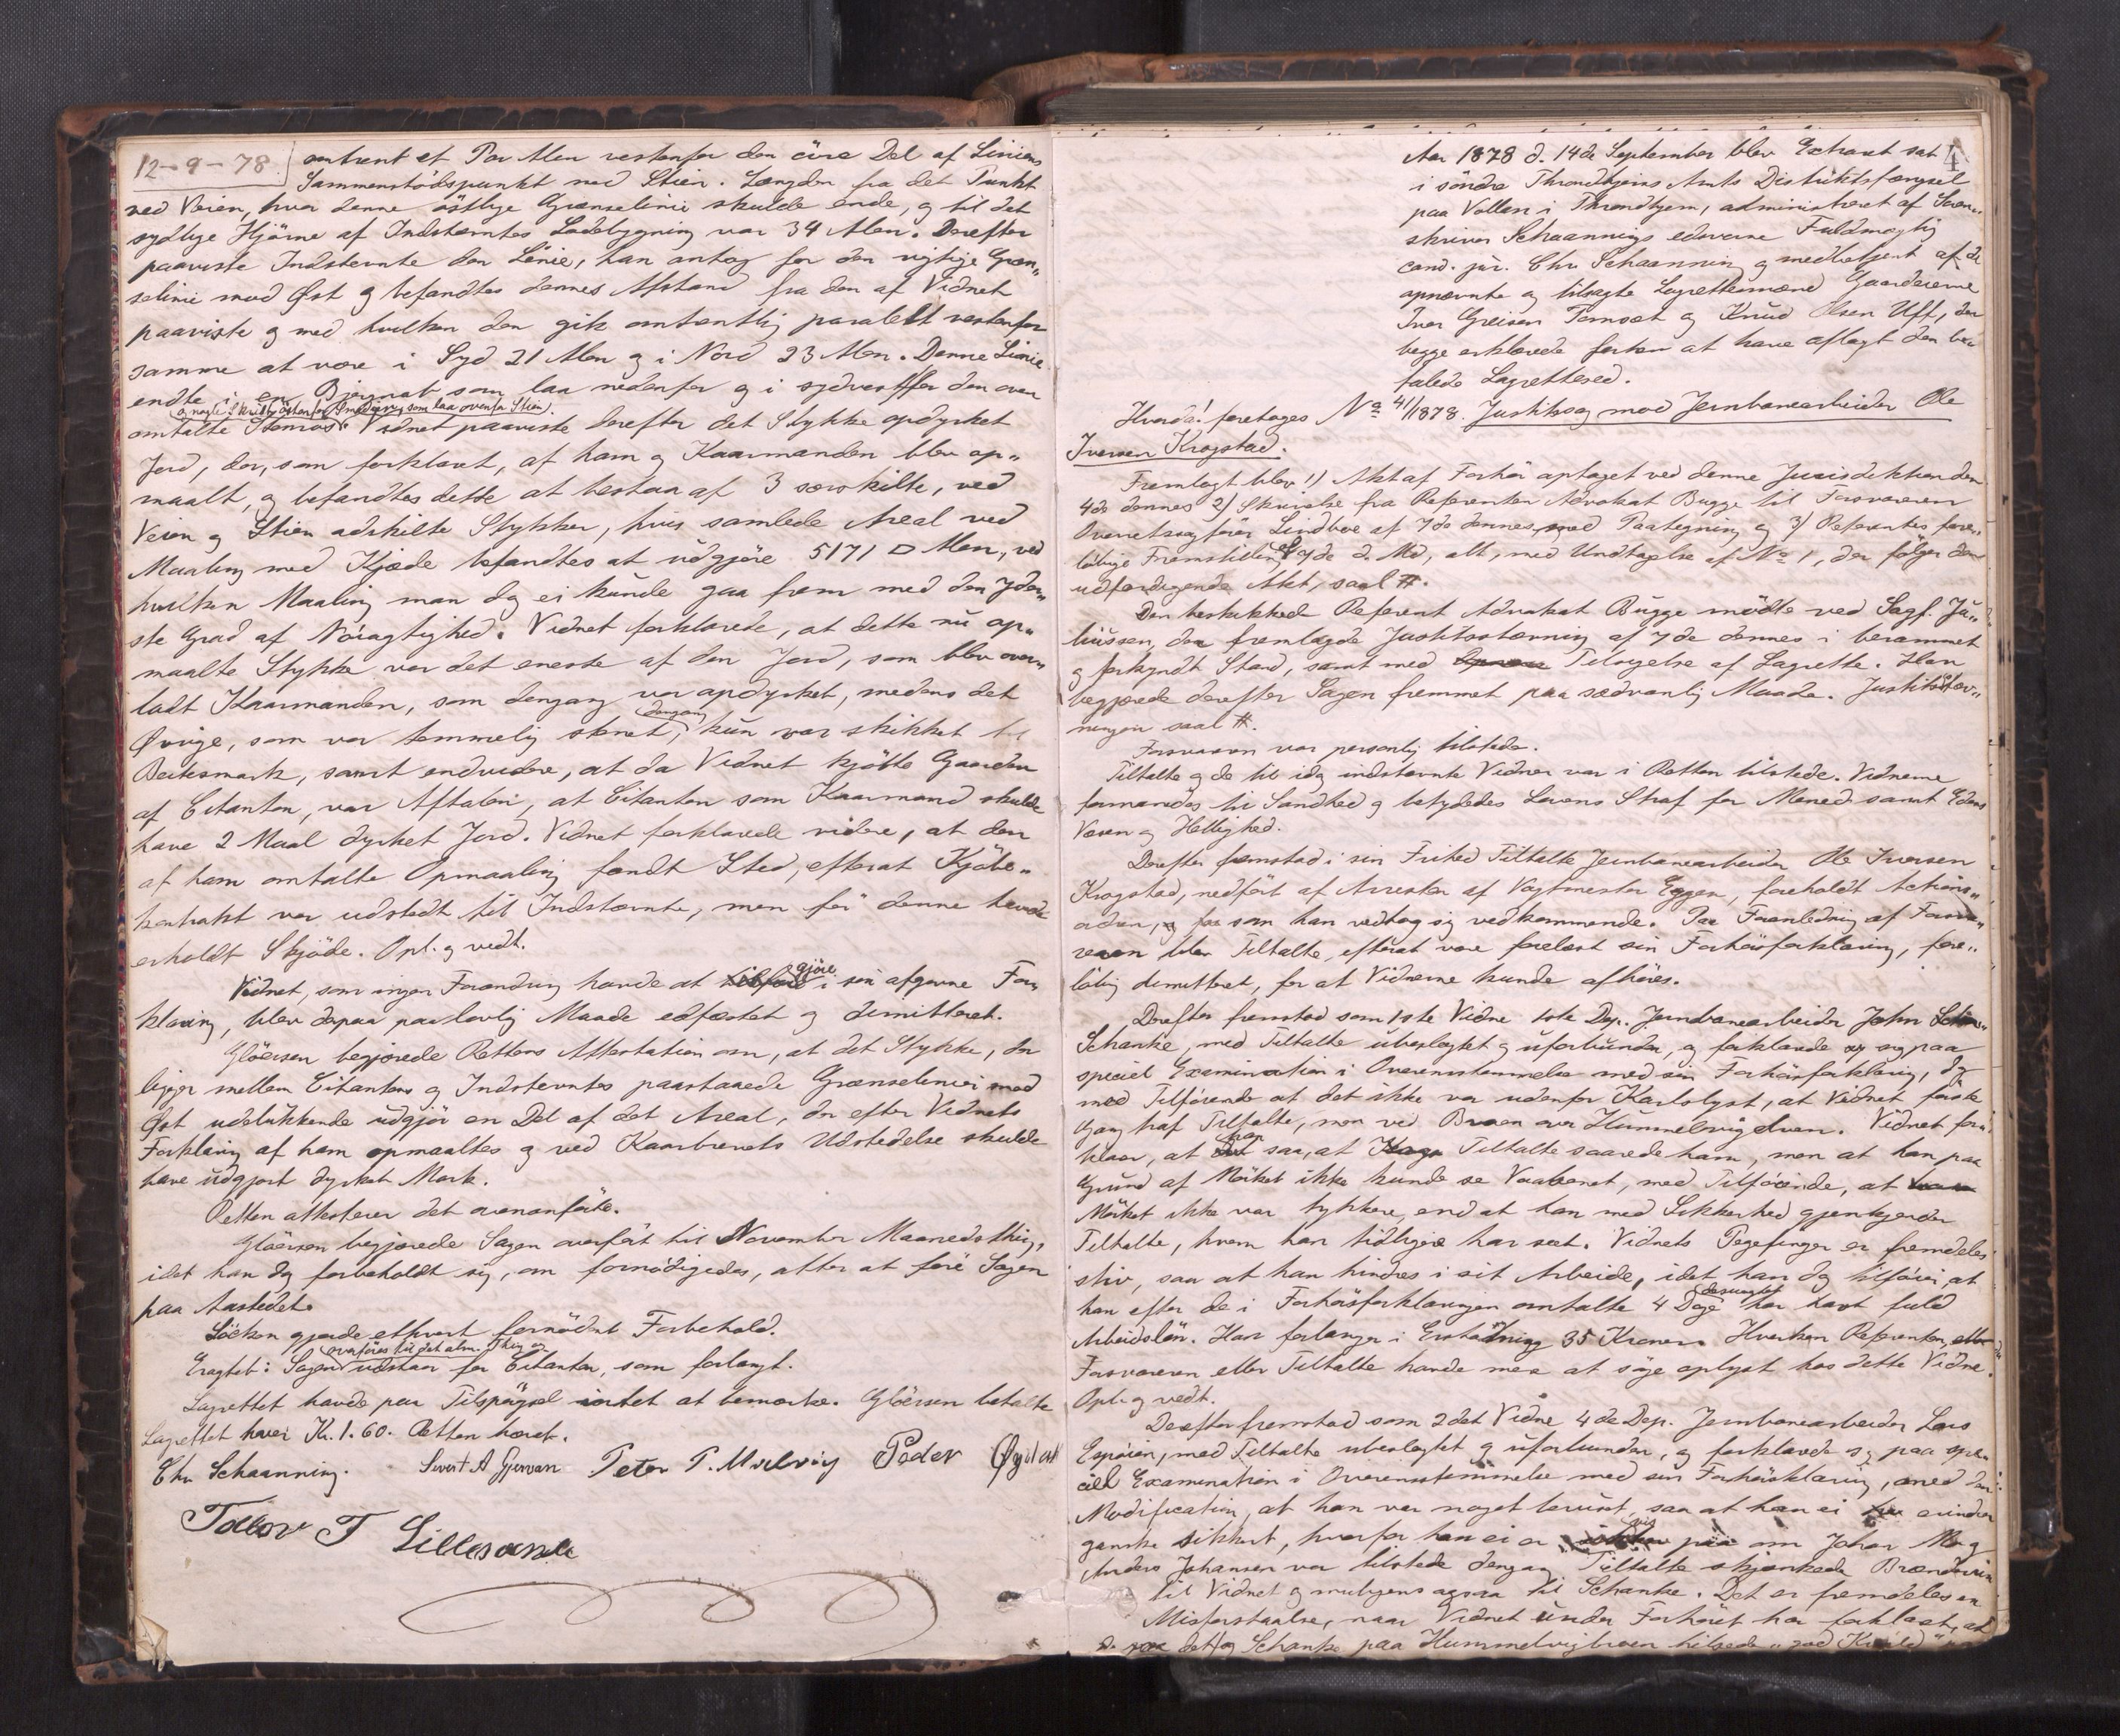 12-9-78
omtrent et Par Alen vestenfor den øvre Del af Liniens
Sammenstödspunkt med Stien. Længden fra det Punkt
ved Veien, hvor denne östlige Grænselinie skulde ende, og til det
sydlige Hjörne af Indstevntes Ladebygning var 34 Alen. Derefter
paaviste Indstevnte den Linie, han antog for den rigtige Græn„
selinie mod Øst og befandtes dennes Afstand fra den af Vidnet
paaviste og med hvilken den gik omtrentlig paralelt vestenfor
samme at være i Syd 21 Alen og i Nord 23 Alen. Denne Linie
endte i en som laa nedenfor og i sydvest for den oven
og nogle Skridt östenfor som laa ovenfor Stien.
omtalte Stenrøs. Vidnet paaviste derefter det Stykke opdyrket
Jord, der, som forklaret, af ham og Kaarmanden blev op„
maalt, og befandtes dette at bestaa af 3 særskilte, ved
Veien og Stien adskilte Stykker, hvis samlede Areal ved
Maaling med Kjæde befandtes at udgjöre 5171 □ Alen, ved
hvilken Maaling man dog ei kunde gaa frem med den yder„
ste Grad af Nöiagtighed. Vidnet forklarede, at dette nu op„
maalte Stykke var det eneste af den Jord, som blev over„
ladt Kaarmanden, som dengang var opdyrket, medens det
Øvrige, som var temmelig stenet, dengang kun var skikket til
Beitesmark, samt endvidere, at da Vidnet kjöbte Gaarden
af Citanten, var Aftalen, at Citanten som Kaarmand skulde
have 2 Maal dyrket Jord. Vidnet forklarede videre, at den
af ham omtalte Opmaaling fandt Sted, efterat Kjöbe„
kontrakt var udstedt til Indstævnte, men för denne havde
erholdt Skjöde. Opl. og vedt.
Vidnet, som ingen Forandring havde at gjöre i sin afgivne For„
klaring, blev derpaa paa lovlig Maade edfæstet og dimitteret.
Glöersen begjærede Rettens Attestation om, at det Stykke, der
ligger mellem Citantens og Indstevntes paastaaede Grænselinier mod
Øst udelukkende udgjör en Del af det Areal, der efter Vidnets
Forklaring af ham opmaaltes og ved Kaarbrevets Udstedelse skulde
have udgjort dyrket Mark.
Retten attesterer det ovenanförte.
Glöersen begjærede Sagen overfört til November Maanedsthing,
idet han dog forbeholdt sig, om fornödigedes, atter at före Sagen
paa Aastedet.
Löcken gjorde ethvert fornödent Forbehold.
Eragtet: Sagen overföres til det alm. Thing og udstaar for Citanten, som forlangt.
Lagrettet havde paa Tilspörgsel intet at bemærke. Glöersen betalte
Lagrettet hver Kr. 1.60. Retten hævet.
Chr Schaanning. Sivert A Gjervan Peter P. Peder
Tollov T Lillesand
4
Aar 1878 d. 14de September blev Extraret sat
i söndre Throndhjems Amts Distriktsfængsel
paa Vollan i Throndhjem, administreret af Soren-
skriver Schaannings edsvorne Fuldmægtig
cand. jur. Chr Schaanning og medbetjent af de
opnævnte og tilsagte Lagrettemænd Gaardeierne
Iver Greisen Tomset og Knud Olsen Uff, der
begge erklærede forhen at have aflagt den be-
falede Lagretteed.
Hvorda! foretages No 4/1878. Justitssag mod Jernbanearbeider Ole
Iversen Krogstad.
Fremlagt blev 1) Akt af Forhör optaget ved denne Jurisdiktion den
4de dennes 2) Skrivelse fra Referenten Advokat Bugge til Forsvareren
Overretssagförer Lindboe af 7de dennes, med Paategning og 3) Referentens fore„
löbige Fremstilling af 7de d. Md, alt, med Undtagelse af No 1, der fölger den
udfærdigende Akt, saal #.
Den beskikkede Referent Advokat Bugge mödte ved Sagf. Ju„
liussen, der fremlagde Justitsstævning af 7de dennes i berammet
og forkyndt Stand, samt med Tilsigelse af Lagrette. Han
begjærede derefter Sagen fremmet paa sædvanlig Maade. Justitsstæv„
ningen saal #.
Forsvareren var personlig tilstede.
Tiltalte og de til idag indstævnte Vidner var i Retten tilstede. Vidnerne
formanedes til Sandhed og betydedes Lovens Straf for Mened samt Edens
Væsen og Hellighed.
Derefter fremstod i sin Frihed Tiltalte Jernbanearbeider Ole Iversen
Krogstad, nedfört af Arresten af Vagtmester Eggen, foreholdt Actions„
ordren, som han vedtog sig vedkommende. Paa Foranledning af Forsva„
reren blev Tiltalte, efterat være forelæst sin Forhörsforklaring, fore„
löbig dimitteret, for at Vidnerne kunde afhöres.
Derefter fremstod som 1ste Vidne 1ste Dep. Jernbanearbeider John
Schanke, med Tiltalte ubeslegtet og uforbunden, og forklarede sig paa
speciel Examination i Overensstemmelse med sin Forhörsforklaring, dog
med Tilföiende at det ikke var udenfor Karlslyst, at Vidnet förste
Gang traf Tiltalte, men ved Broen over Hummelvigelven. Vidnet for„
klarer, at han saa, at Tiltalte saarede ham, men at han paa
Grund af Mörket ikke kunde se Vaabenet, med Tilföiende, at
Mörket ikke var tykkere, end at han med Sikkerhed gjenkjender
Tiltalte, hvem han tidligere har seet. Vidnets Pegefinger er fremdeles
stiv, saa at han hindres i sit Arbeide, idet han dog tilföier, at
han efter de i Forhörsforklaringen omtalte 4 Dage desuagtet har havt fuld
Arbeidslön. Han forlanger i Erstatning 35 Kroner. Hverken Referenten,
Forsvareren eller Tiltalte havde mere at söge oplyst hos dette Vidne.
Opl. og vedt.
Derefter fremstod som 2det Vidne 4de Dep. Jernbanearbeider Lars
Espöien, med Tiltalte ubeslegtet og uforbunden, og forklarede sig paa spe-
ciel Examination i Overensstemmelse med sin Forhörsforklaring, med den
Modification, at han var noget beruset, saa at han ei erindrer
ganske sikkert, hvorfor han ei er vis paa om Johan Mo og
Anders Johansen var tilstede dengang Tiltalte skjænkede Brændevin
til Vidnet og muligens ogsaa til Schanke. Det er fremdeles en
Misforstaaelse, naar Vidnet under Forhöret har forklaret, at
det og Schanke paa Hummelvigbroen hilsede „god Kveld"